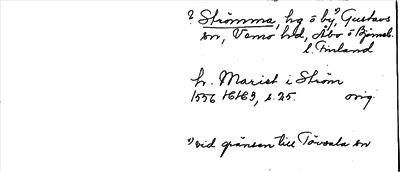 ? Strömma, hg o by, Gustavs
sn, Vemo hd, Åbo o Björneb.
l. Finland
h. Mariet i Ström
1556 s. 25. orig.
1) vid gränsen till Tövsala sn